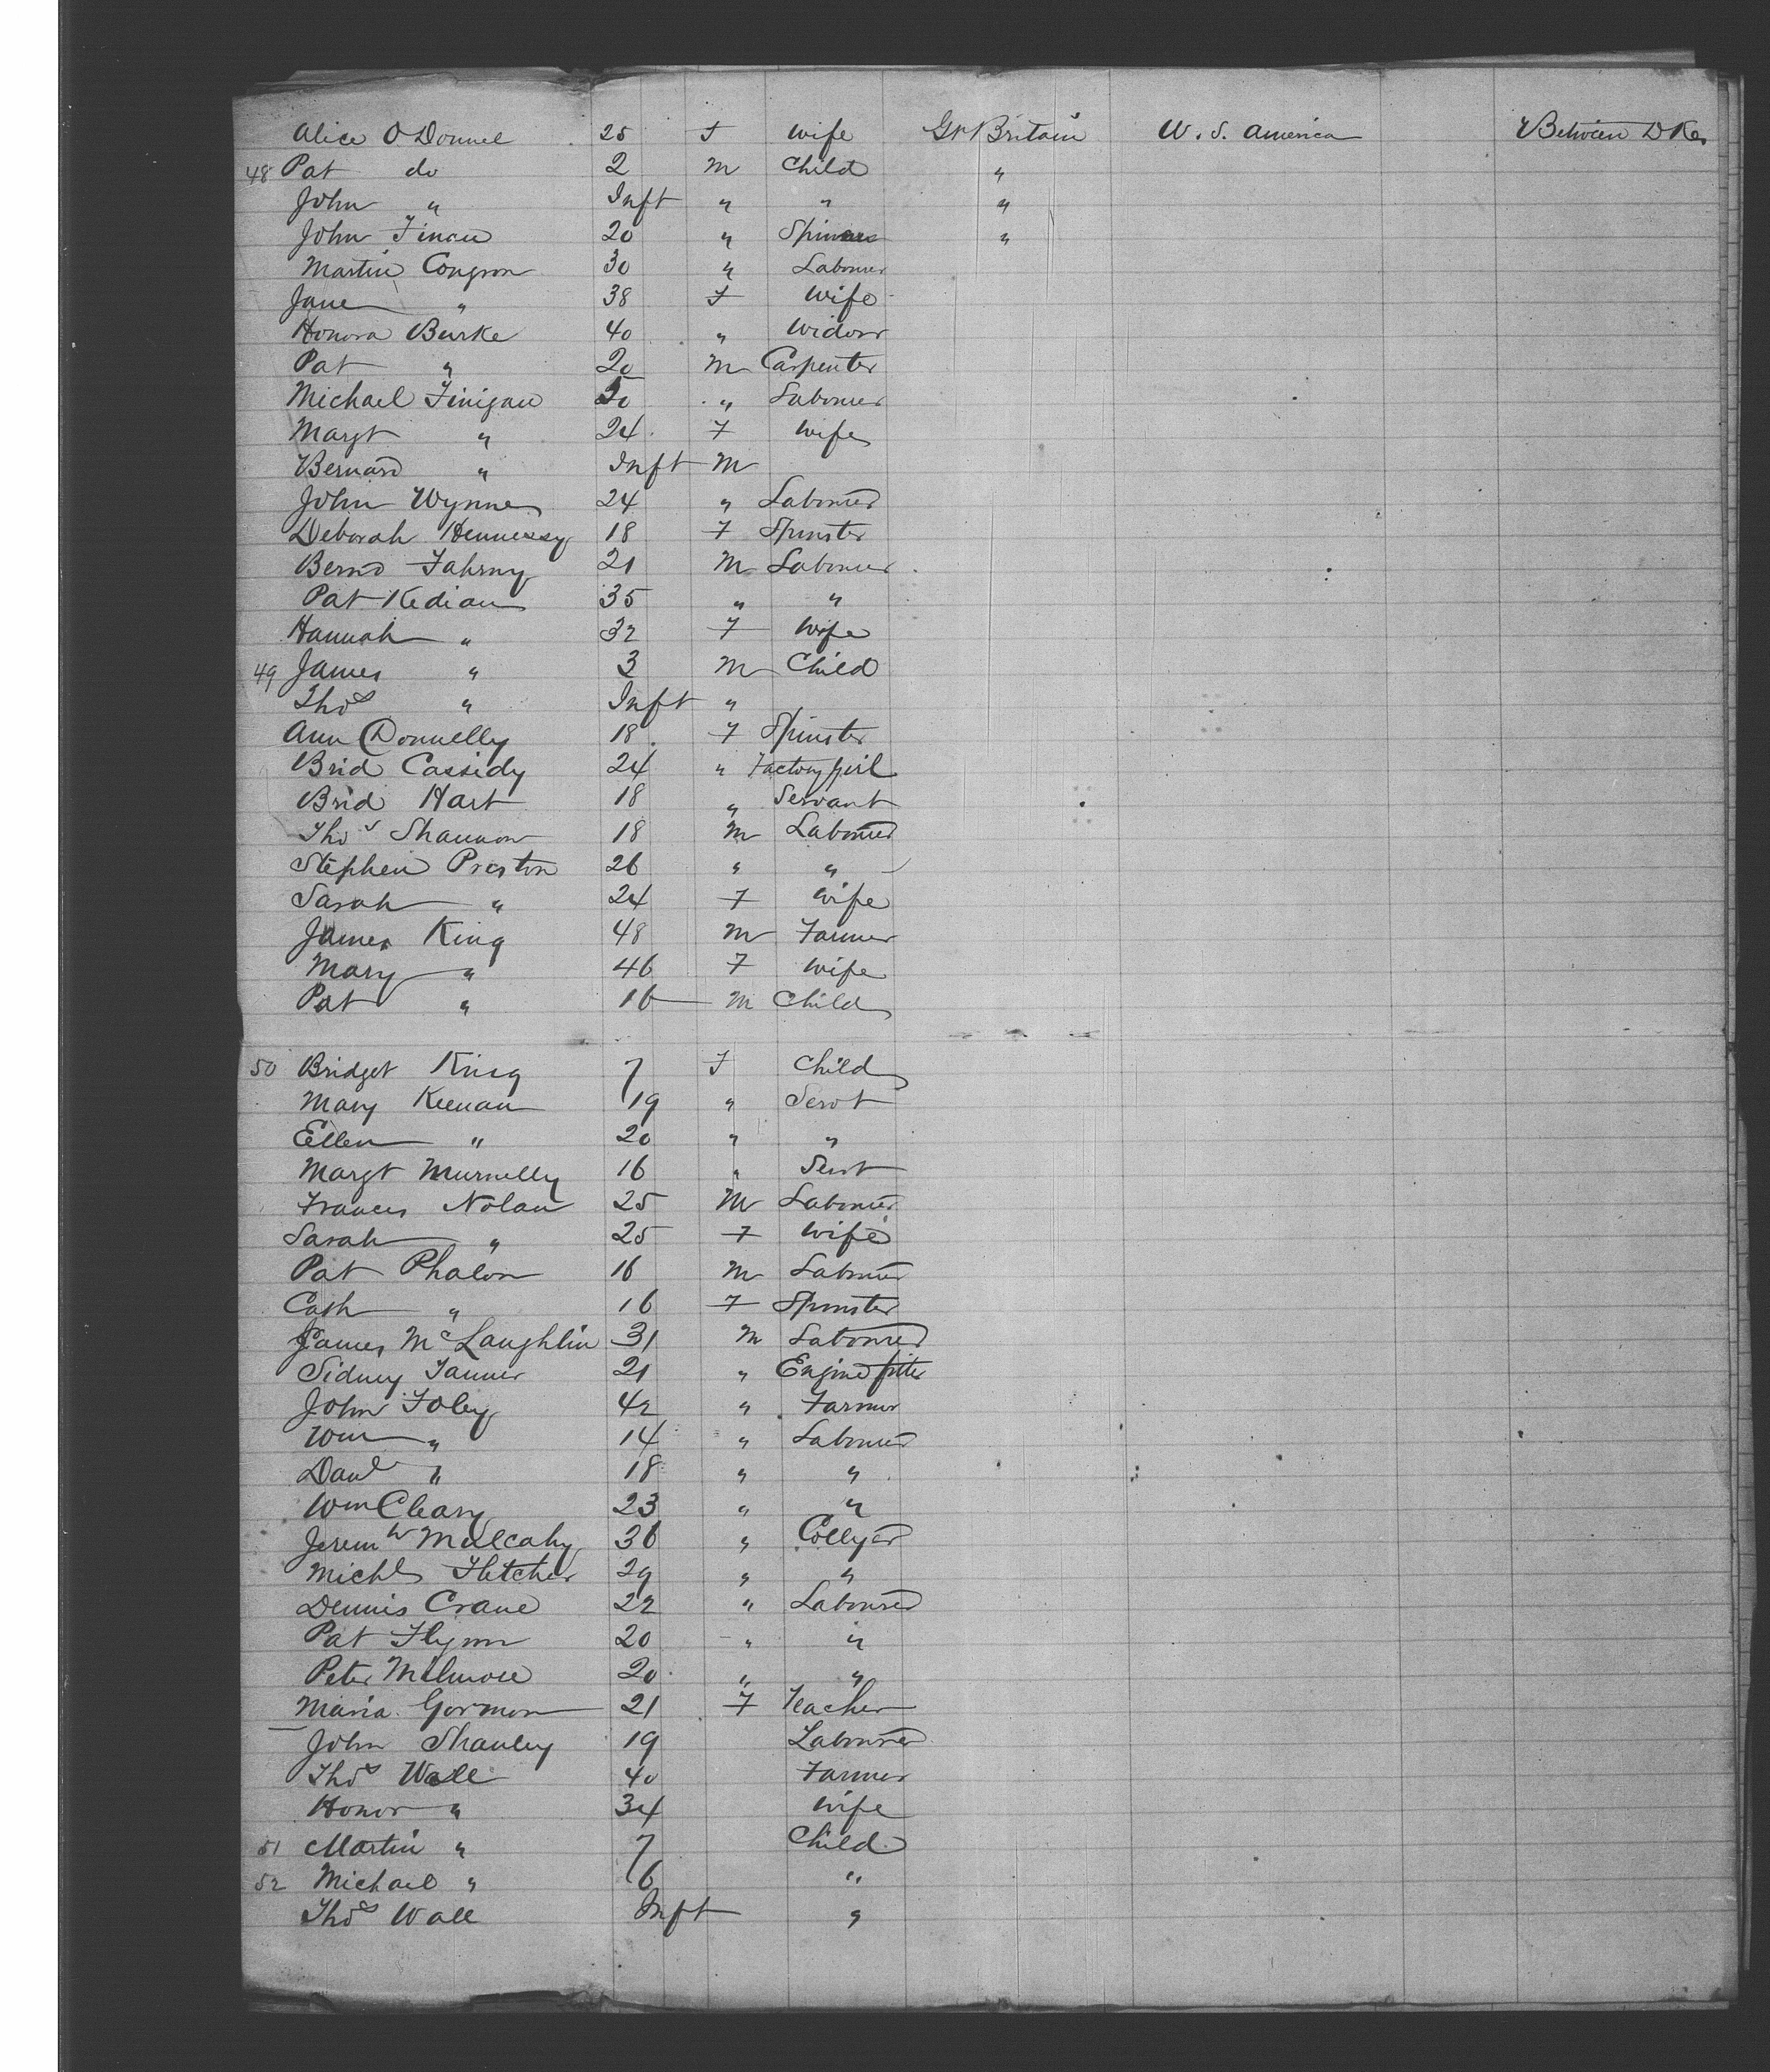 Alice O Donnel 25 F Wife Gt Britain U. S. America Between Dks
48 Pat do 2 M Child "
John " Inft " " "
John Finan 20 " "
Martin 30 " Labourer
Jane " 38 F Wife
Honora Burke 40 " Widow
Pat " 20 M Carpenter
Michael Finigan " Labourer
Margt " 24 F Wife
Bernard " Inft M
John Wynne 24 " Labourer
Deborah Hennessy 18 F Spinster
Bernd 21 M Labourer
Pat Kedian 35 " "
Hannah " 32 F Wife
49 James " 3 M Child
Thos " Inft "
Ann Donnelly 18 F Spinster
Brid Cassidy 24 " Factory girl
Brid Hart 18 " Servant
Thos Shannon 18 M Labourer
Stephen Preston 26 " "
Sarah " 24 F Wife
James King 48 M Farmer
Mary " 46 F Wife
Pat " 16 M Child
50 Bridget King 7 F Child
Mary Keenan 19 " Servt
Ellen " 20 " "
Margt Murnelly 16 " Servt
Frances Nolan 25 M Labourer
Sarah " 25 F Wife
Pat Phalon 16 M Labourer
Cath " 16 F Spinster
James McLaughlin 31 M Labourer
Sidney 21 " Engine fitter
John Foley 42 " Farmer
Wm " 14 " Labourer
Danl " 18 " "
Wm Cleary 23 " "
Jeremh Mulcahy 36 " Collyer
Michl Fletcher 29 " "
Dennis Crane 22 " Labourer
Pat Flynn 20 " "
Peter 20 " "
Maria Gormon 21 F Teacher
John Shanley 19 Labourer
Thos Wall 40 Farmer
Honor " 34 Wife
51 Martin " 7 Child
52 Michael " 6 "
Thos Wall Inft "